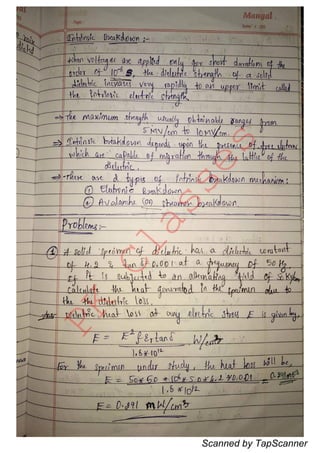 Mangal
Page:
Intrinsic Breakdown :-
When voltages are applied only for short durations of the
order of 10⁻⁸ S, the dielectric strength of a solid
dielectric increases very rapidly to an upper limit called
the intrinsic electric strength.
→ The maximum strength usually obtainable ranges from
5 MV/cm to 10 MV/cm.
⇒ Intrinsic breakdown depends upon the presence of free electrons
which are capable of migration through the lattice of the
dielectric.
⇒ There are 2 types of Intrinsic breakdown mechanism:
① Eletronic Breakdown
② Avalanche (or) Streamer breakdown.
Problems:-
① A solid specimen of dielectric has a dielectric constant
of 4.2 & tan δ 0.001 at a frequency of 50 Hz
if it is subjected to an alternating field of 50 KV/cm
Calculate the heat generated in the specimen due to
the dielectric loss.
Dielectric heat loss at any electric stress E is given by.
E = E² f εr tan δ W/cm³
1.8 × 10¹²
For the specimen under study, the heat loss will be,
E = 50 × 50 × 10⁶ × 50 × 4.2 × 0.001 =
1.8 × 10¹²
E = 0.291 mW/cm³
Scanned by TapScanner